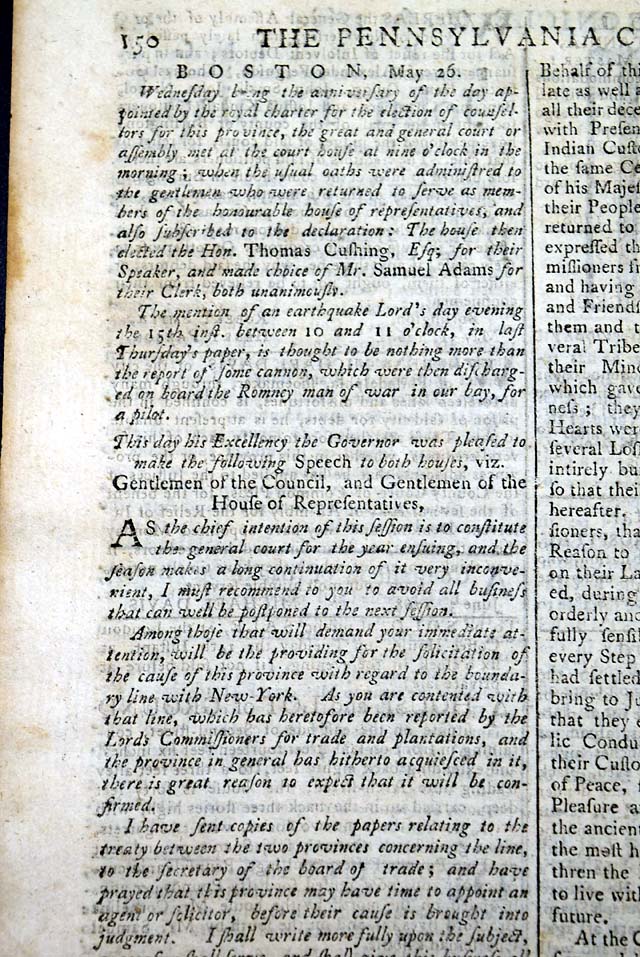 150 THE PENNSYLVANIA C
BOSTON, May 26.
Wednesday being the anniversary of the day ap-
pointed by the royal charter for the election of counsel-
lors for this province, the great and general court or
assembly met at the court house at nine o'clock in the
morning; when the usual oaths were administred to
the gentlemen who were returned to serve as mem-
bers of the honourable house of representatives, and
also subscribed to the declaration: The house then
elected the Hon. Thomas Cushing, Esq; for their
Speaker, and made choice of Mr. Samuel Adams for
their Clerk, both unanimously.
The mention of an earthquake Lord's day evening
the 15th inst. between 10 and 11 o'clock, in last
Thursday's paper, is thought to be nothing more than
the report of some cannon, which were then discharg-
ed on board the Romney man of war in our bay, for
a pilot.
This day his Excellency the Governor was pleased to
make the following Speech to both houses, viz.
Gentlemen of the Council, and Gentlemen of the
House of Representatives,
AS the chief intention of this session is to constitute
the general court for the year ensuing, and the
season makes a long continuation of it very inconve-
nient, I must recommend to you to avoid all business
that can well be postponed to the next session.
Among those that will demand your immediate at-
tention, will be the providing for the solicitation of
the cause of this province with regard to the bounda-
ry line with New-York. As you are contented with
that line, which has heretofore been reported by the
Lords Commissioners for trade and plantations, and
the province in general has hitherto acquiesced in it,
there is great reason to expect that it will be con-
firmed.
I have sent copies of the papers relating to the
treaty between the two provinces concerning the line,
to the secretary of the board of trade; and have
prayed that this province may have time to appoint an
agent or solicitor, before their cause is brought into
judgment. I shall write more fully upon the subject,
Behalf of thi
late as well a
all their dece
with Presen
Indian Custo
the same Ce
of his Majef
their People
returned to
expressed th
missioners f
and having
and Friends
them and t
veral Tribe
their Mind
which gave
ness; they
Hearts were
several Loss
intirely bu
so that their
hereafter.
sioners, tha
Reason to
on their La
ed, during
orderly and
fully sensi
every Step
had settled
bring to Ju
that they e
lic Condu
their Custo
of Peace,
Pleasure a
the ancien
the most h
thren the
to live with
future.
At the C